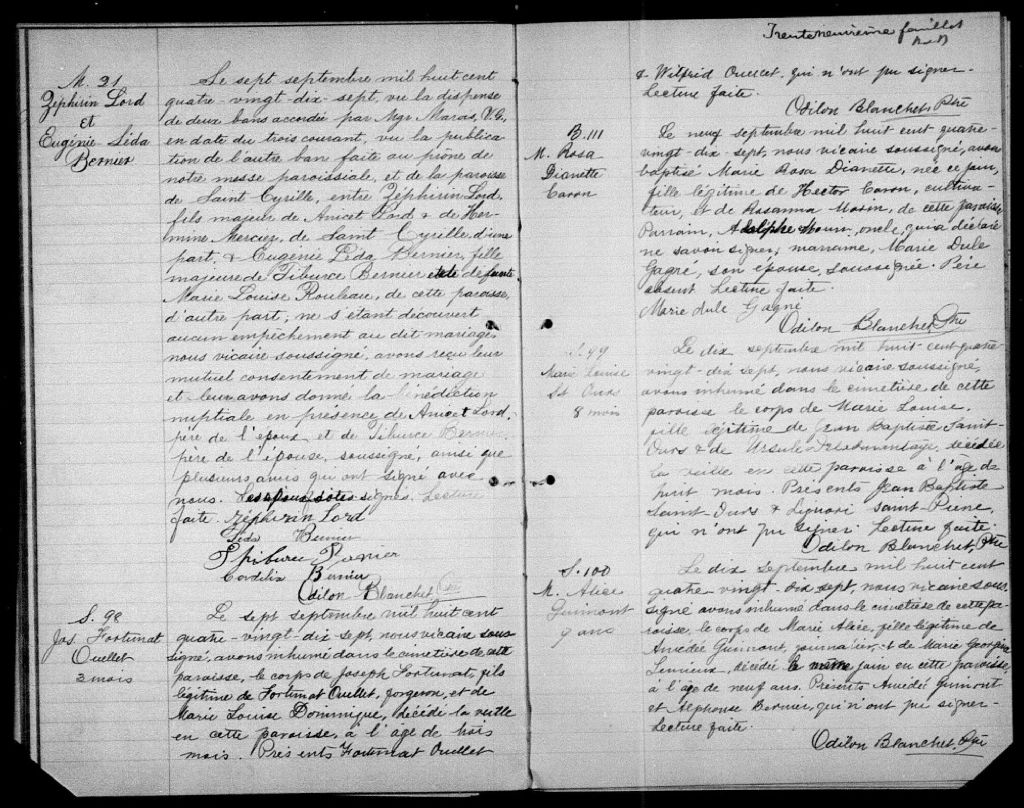 M. 31
Zéphirin Lord
et
Eugénie Léda
Bernier
Le sept septembre mil huit cent
quatre-vingt-dix-sept, vu la dispense
de deux bans accordée par Mgr Marois, V.G,
en date du trois courant, vu la publica
tion de l'autre ban faite au prône de
notre messe paroissiale, et de la paroisse
de Saint Cyrille, entre Zéphirin Lord,
fils majeur de Anicet Lord & de Her-
mine Mercier, de Saint Cyrille, d'une
part, & Eugénie Léda Bernier, fille
majeure de Tiburce Bernier et de feue
Marie Louise Rouleau, de cette paroisse,
d'autre part; ne s'étant découvert
aucun empêchement au dit mariage,
nous vicaire soussigné, avons reçu leur
mutuel consentement de mariage
et leur avons donné la bénédiction
nuptiale en présence de Anicet Lord,
père de l'époux et de Tiburce Bernier,
père de l'épouse, soussigné, ainsi que
plusieurs amis qui ont signé avec
nous. Les époux signés. Lecture
faite. Zéphirin Lord
Léda Bernier
Thiburce Bernier
Cordélia Bernier
Odilon Blanchet Ptre
S. 98
Jos. Fortunat
Ouellet
3 mois
Le sept septembre mil huit cent
quatre-vingt-dix sept, nous vicaire sous-
signé, avons inhumé dans le cimetière de cette
paroisse, le corps de Joseph Fortunat, fils
légitime de Fortunat Ouellet, forgeron, et de
Marie Louise Dominique, décédé la veille
en cette paroisse, à l'âge de trois
mois. Présents Fortunat Ouellet
Trente neuvième feuillet
& Wilfrid Ouellet, qui n'ont pu signer.
Lecture faite.
Odilon Blanchet, Ptre
B. 111
M. Rosa
Dianette
Caron
Le neuf septembre mil huit cent quatre-
vingt-dix-sept, nous vicaire soussigné, avons
baptisé Marie Rosa Dianette, née ce jour,
fille légitime de Hector Caron, cultiva-
teur, et de Rosanna Morin, de cette paroisse
Parrain, Adolphe Morin, oncle, qui a déclaré
ne savoir signer; marraine, Marie Dule
Gagné, son épouse, soussignée. Père
absent Lecture faite.
Marie dule Gagné
Odilon Blanchet Ptre
S. 99
Marie Louise
St Ours
8 mois
Le dix septembre mil huit-cent quatre
vingt-dix sept, nous vicaire soussigné,
avons inhumé dans le cimetière de cette
paroisse le corps de Marie Louise,
fille légitime de Jean Baptiste Saint-
Ours & de Ursule décédée
la veille en cette paroisse à l'âge de
huit mois. Présents Jean Baptiste
Saint-Ours & Liguori Saint-Pierre,
qui n'ont pu signer. Lecture faite.
Odilon Blanchet, Ptre
S. 100
M. Alice
Guimont
9 ans
Le dix septembre mil huit cent
quatre-vingt-dix sept, nous vicaire sous-
signé avons inhumé dans le cimetière de cette pa-
roisse, le corps de Marie Alice, fille légitime de
Amédée Guimont, journalier, et de Marie Georgina
Lemieux, décédée le même jour en cette paroisse
à l'âge de neuf ans. Présents Amédé Guimont
et Alphonse Bernier, qui n'ont pu signer-
Lecture faite.
Odilon Blanchet, Ptre